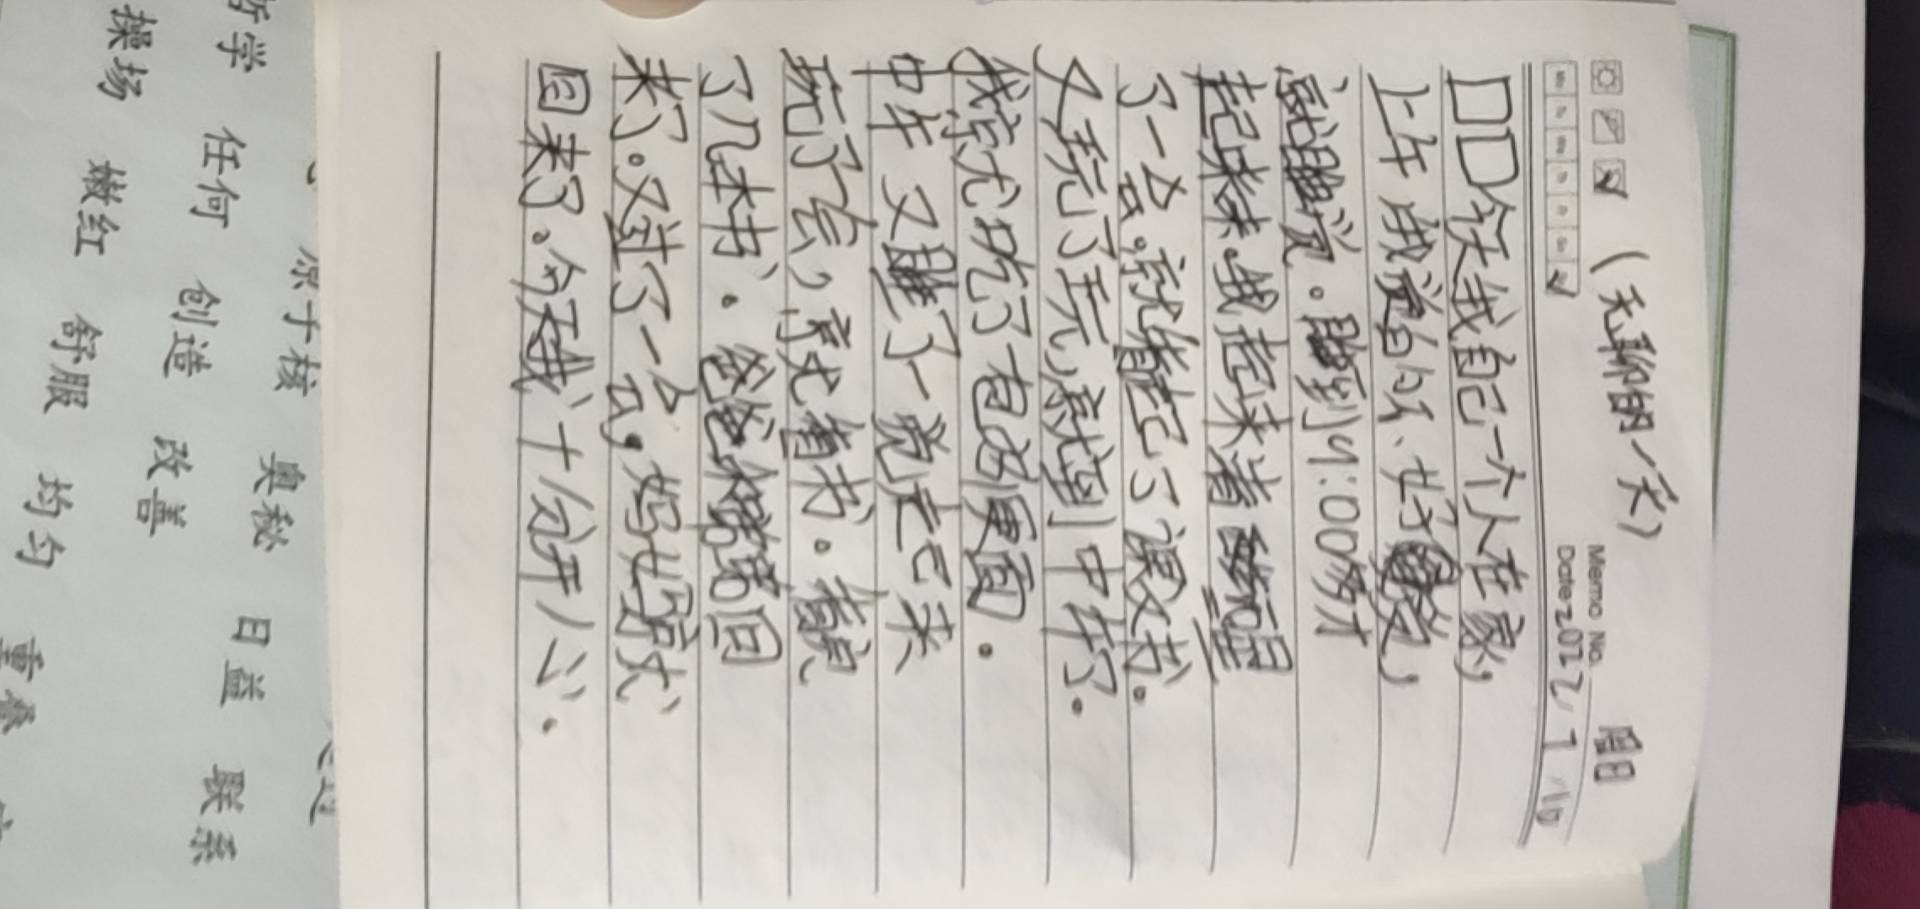 (无聊的一天)
Memo No.
Date 2022 1
今天我自己一个人在家,
上午我觉的不好受,
就睡觉。睡到9:00多才
起来。我起来看
了一会。就看起了课文书。
又玩了玩,就到中午了。
我就吃了一包泡面。
中午又睡了一觉起来
玩了会,就看书。看完
了几本书。爸爸
来了。又过了一会,妈妈就
回来了。今天我十分开心。
哲学
操场
任何
嫩红
原子核
创造
舒服
奥秘
改善
均匀
日益
联系